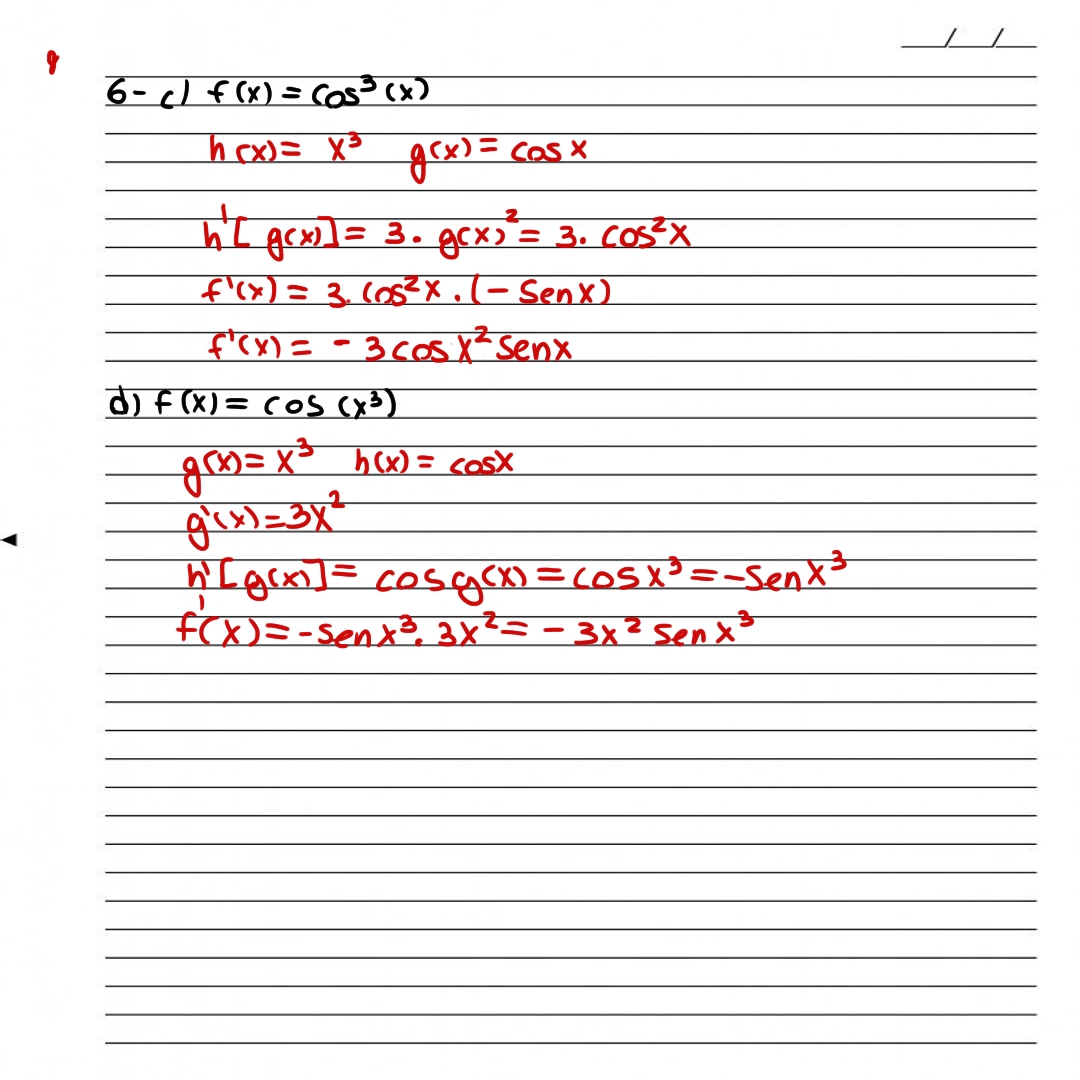 6- c) f(x) = cos³(x)
h(x) = x³ g(x) = cos x
h'[g(x)] = 3. g(x)² = 3. cos²x
f'(x) = 3. cos²x . (- sen x)
f'(x) = - 3 cos x² sen x
d) f(x) = cos (x³)
g(x) = x³ h(x) = cosx
g'(x) = 3x²
h'[g(x)] = cos g(x) = cos x³ = -sen x³
f'(x) = - sen x³. 3x² = - 3x² sen x³